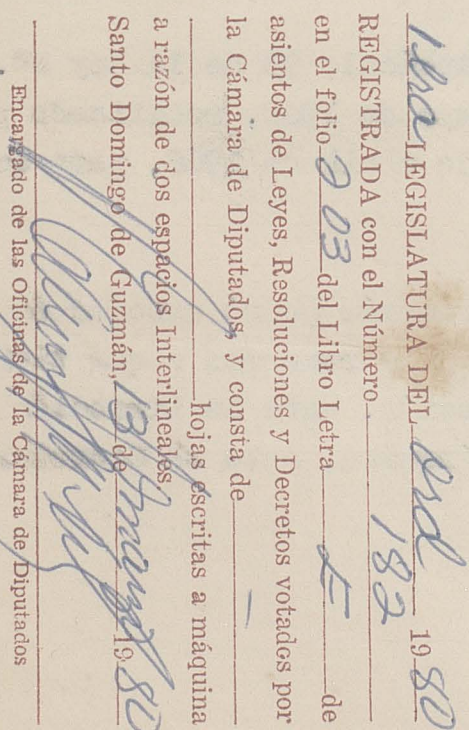 1era LEGISLATURA DEL Ord 1980
REGISTRADA con el Número 182
en el folio 203 del Libro Letra de
asientos de Leyes, Resoluciones y Decretos votados por
la Cámara de Diputados, y consta de
hojas escritas a máquina
a razón de dos espacios Interlineales
Santo Domingo de Guzmán, 13 de 1980
Encargado de las Oficinas de la Cámara de Diputados